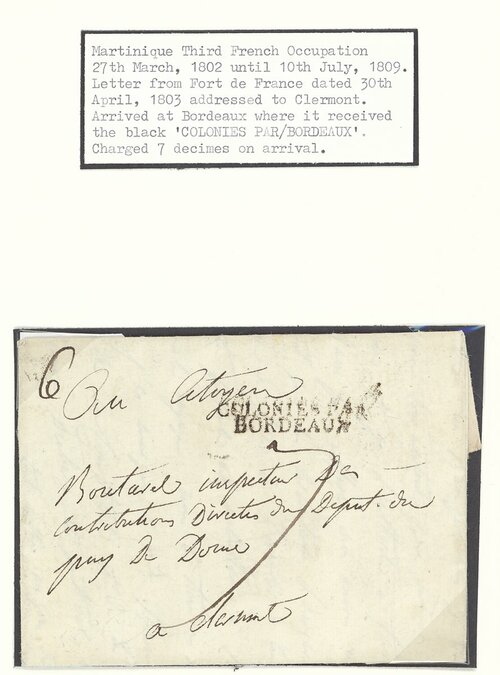 Martinique Third French Occupation
27th March, 1802 until 10th July, 1809.
Letter from Fort de France dated 30th
April, 1803 addressed to Clermont.
Arrived at Bordeaux where it received
the black 'COLONIES PAR/BORDEAUX'.
Charged 7 decimes on arrival.
6
Au Citoyen
COLONIES PAR
BORDEAUX
7
Boutarel inspecteur Des
Contributions Directes du Depart. du
puy De Dome
a Clermont